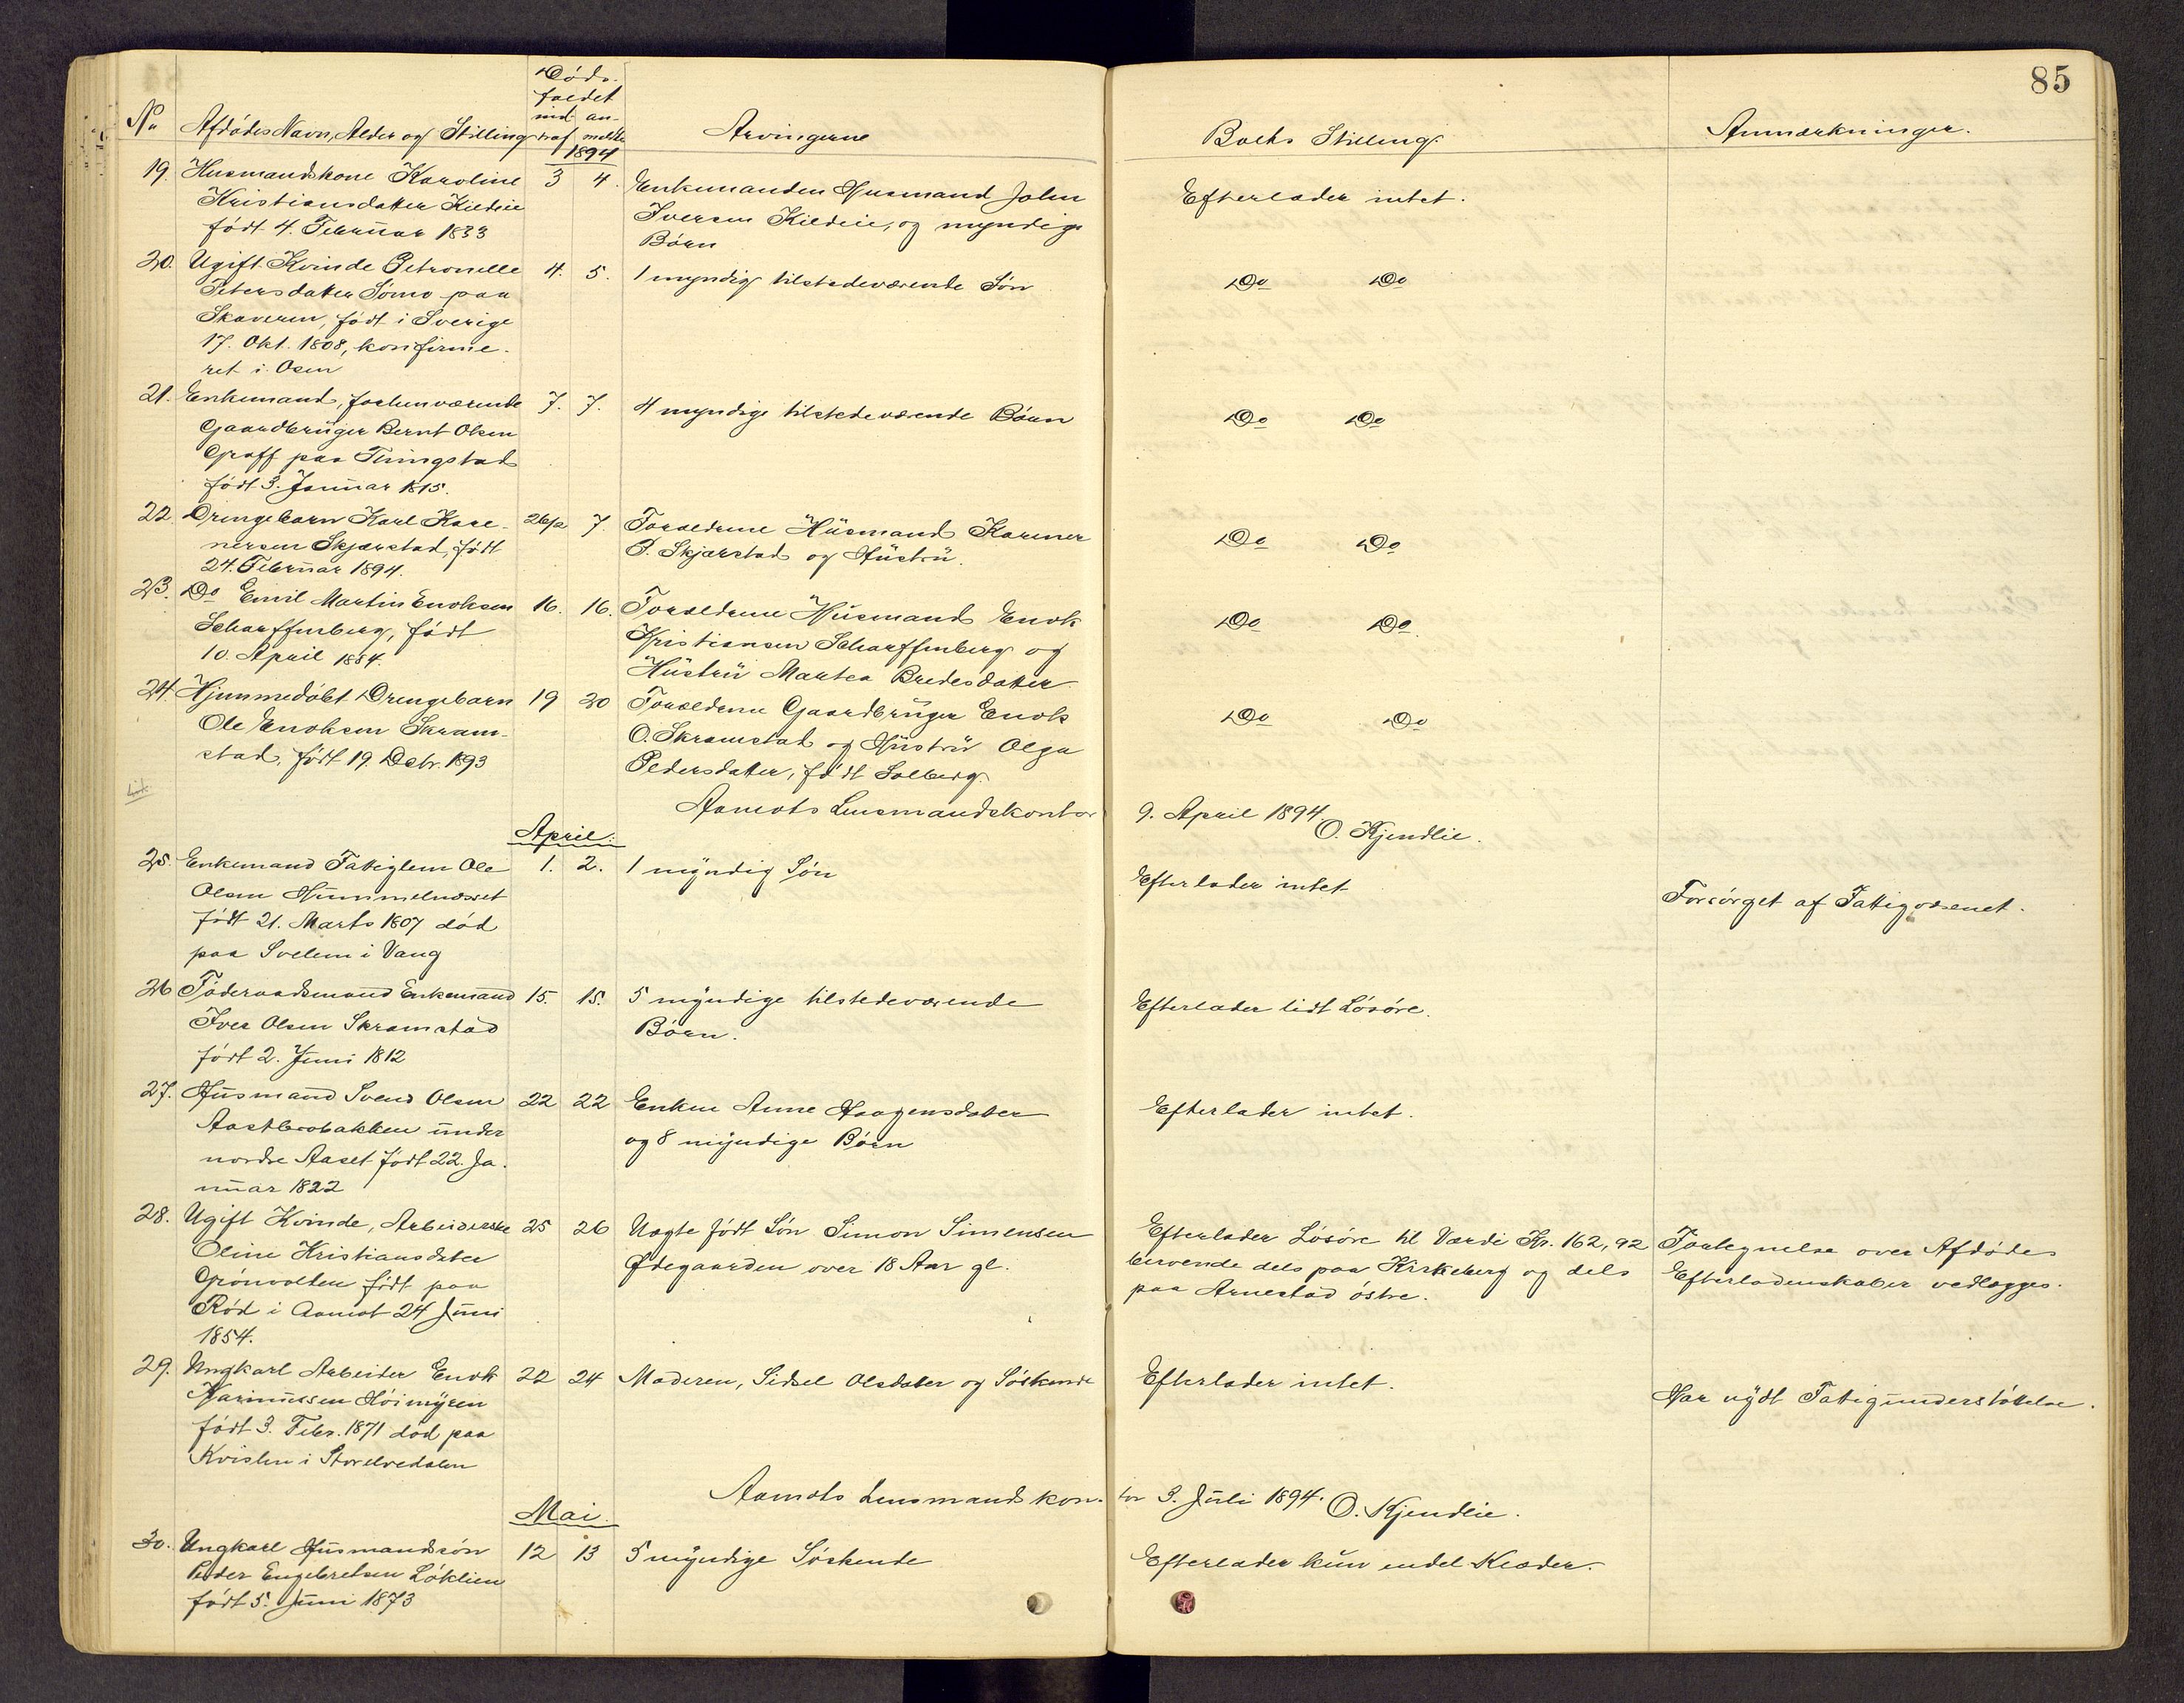 85
Døds-
faldet
ind- an-
traf meldt
No Afdødes Navn, Alder og Stilling Arvingerne Boets Stilling Anmærkninger.
1894
19. Husmandskone Karoline 3 4. Enkemanden Husmand John Efterlader intet.
Kristiansdatter Kildeie Iversen Kildeie, og myndige
født 4. Februar 1833 Børn
20. Ugift Kvinde Petronelle 4. 5. 1 myndig tilstedeværende Søn Do Do
Petersdatter Sømo paa
Skaveren, født i Sverige
17. Okt. 1808, konfirme-
ret i Osen
21. Enkemand, forhenværende 7. 7. 4 myndige tilstedeværende Børn Do Do
Gaardbruger Bernt Olsen
Graff paa Thingstad
født 3. Januar 1815.
22. Drengebarn Karl Kare- 26/2 7. Forældrene Husmand Karener Do Do
nersen Skjærstad, født P. Skjærstad og Hustru.
24. Februar 1894.
23. Do Emil Martin Enoksen 16. 16. Forældrene Husmand Enok Do Do.
Scharffenberg, født Kristiansen Scharffenberg og
10. April 1884. Hustru Martea Bredesdatter
24. Hjemmedøbt Drengebarn 19 20 Forældrene Gaardbruger Enok Do Do
Ole Enoksen Skram- O. Skramstad og Hustru Olga
stad, født 19. Debr. 1893 Pedersdatter, født Solberg.
Aamots Lensmandskontor 9. April 1894.
O. Kjendlie.
April.
25. Enkemand Fattiglem Ole 1. 2. 1 myndig Søn Efterlader intet Forsørget af Fattigvæsenet.
Olsen Hummelnæsset
født 21. Marts 1807 død
paa Svelem i Vang
26 Føderaadsmand Enkemand 15. 15. 5 myndige tilstedeværende Efterlader lidt Løsøre.
Iver Olsen Skramstad Børn.
født 2. Juni 1812
27. Husmand Svend Olsen 22 22 Enken Anne Haagensdatter Efterlader intet.
Aastbrobakken under og 8 myndige Børn
nordre Aaset født 22. Ja-
nuar 1822
28. Ugift Kvinde, Arbeiderske 25 26 Uægte født Søn Simon Simensen Efterlader Løsøre til Værdi Kr. 162,92 Fortegnelse over Afdødes
Oline Kristiansdatter Ødegaarden over 18 Aar gl. beroende dels paa Kirkeberg og dels Efterladenskaber vedlægges.
Grønvolden født paa paa Arnestad østre.
Rød i Aamot 24 Juni
1854.
29. Ungkarl Arbeider Enok 22 24 Moderen, Sidsel Olsdatter og Søskende Efterlader intet. Har nydt Fattigunderstøttelse.
Karinussen Høimyren
født 3. Febr. 1871 død paa
Kvislen i Storelvedalen
Aamots Lensmandskon- tor 3. Juli 1894. O. Kjendlie.
Mai.
30. Ungkarl Husmandssøn 12 13 5 myndige Søskende Efterlader kun endel Klæder.
Peder Engebretsen Løklien
født 5. Juni 1873